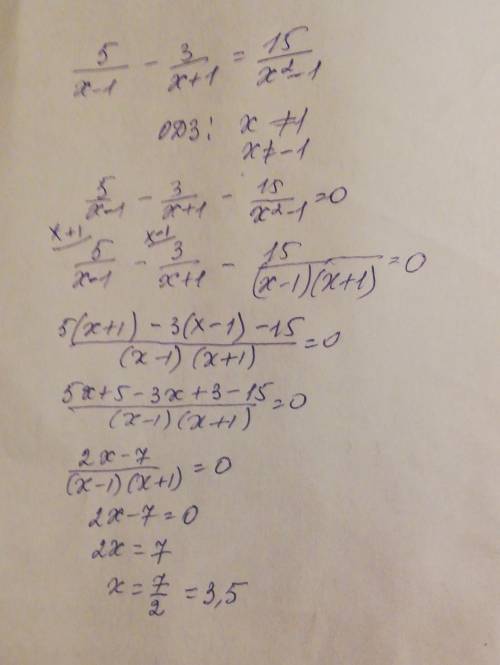 5/(x-1) - 3/(x+1) = 15/(x²-1)
ОДЗ: x ≠ 1
x ≠ -1
5/(x-1) - 3/(x+1) - 15/(x²-1) = 0
x+1 5/(x-1) - x-1 3/(x+1) - 15/((x-1)(x+1)) = 0
(5(x+1) - 3(x-1) - 15)/((x-1)(x+1)) = 0
(5x+5-3x+3-15)/((x-1)(x+1)) = 0
(2x-7)/((x-1)(x+1)) = 0
2x-7=0
2x=7
x = 7/2 = 3,5